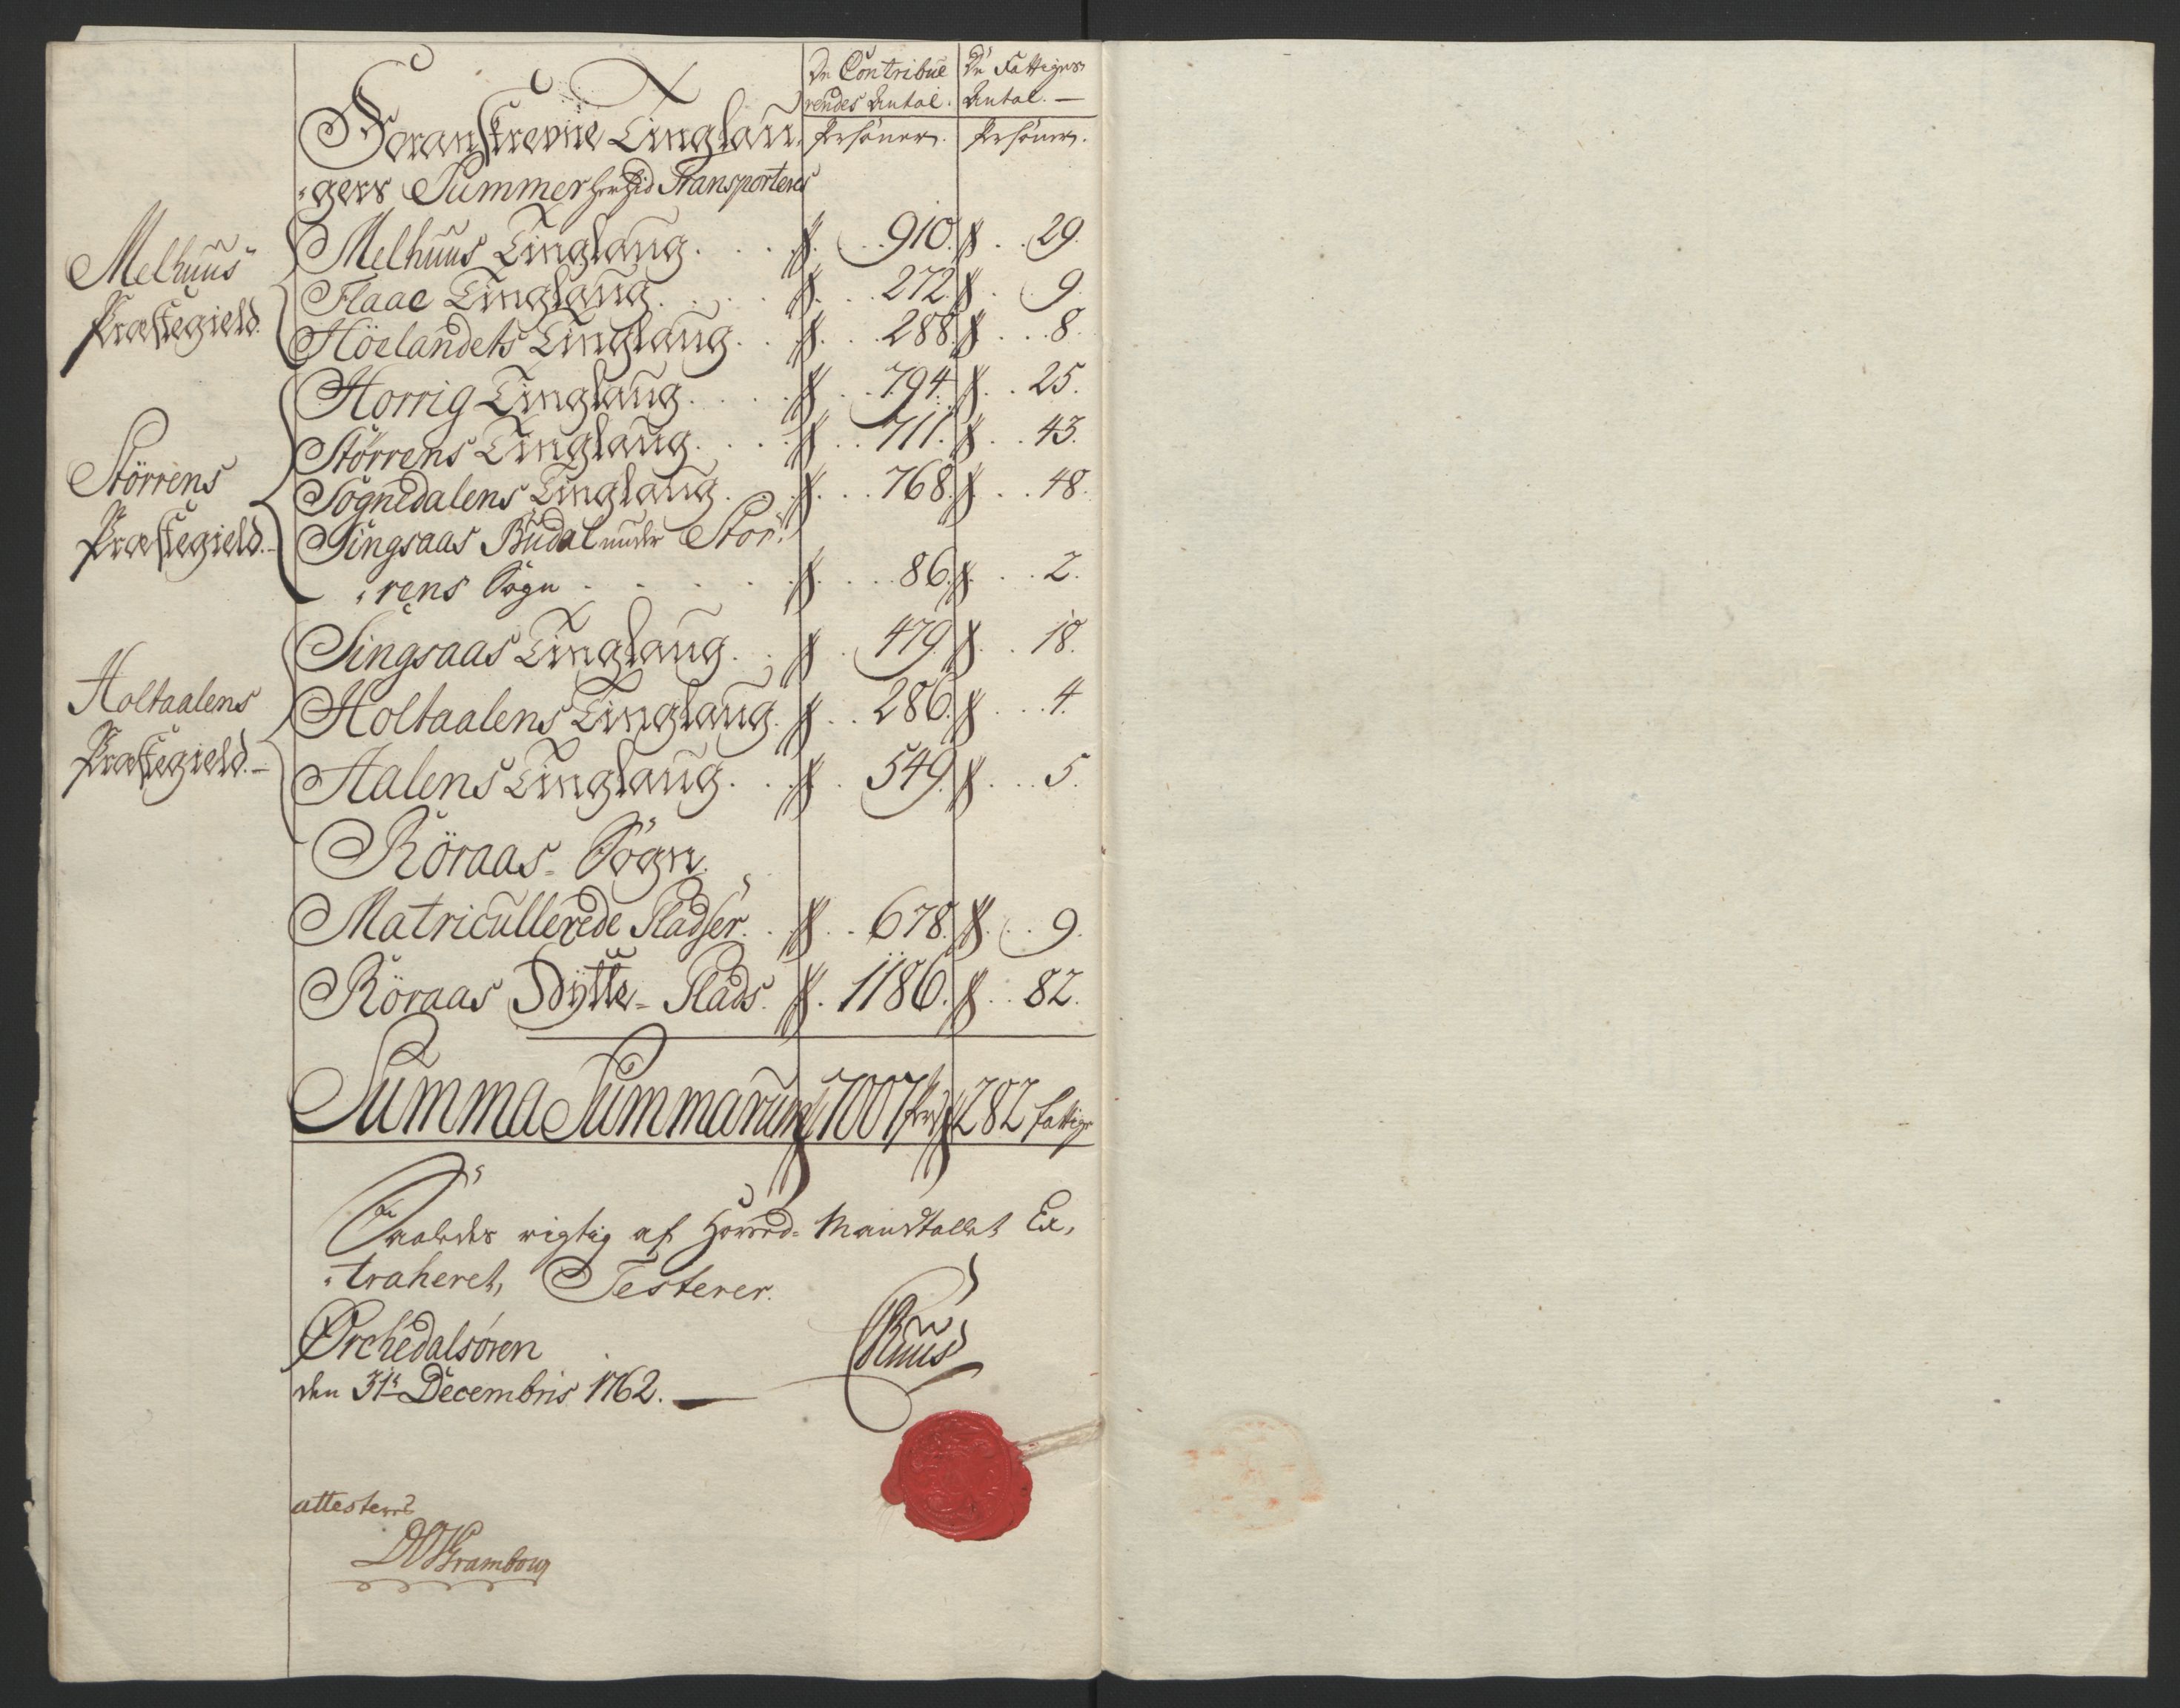 De Contribue De Fattiges
rendes Antal. Antal. —
Foranskrevne Tinglau Persöner. Persöner.
gers Summer herhid Transporteres
Melhuus Præstegield.
Melhuus Tinglaug. 910. 29.
Flaae Tinglaug. 272. 9.
Höelandets Tinglaug. 288. 8.
Störrens Præstegield.
Horrig Tinglaug. 794. 25.
Störrens Tinglaug. 711. 43.
Sognedalens Tinglaug. 768. 48.
Singsaas Budal under Stör
rens Sogn. 86. 2.
Holtaalens Præstegield.
Singsaas Tinglaug. 479. 18.
Holtaalens Tinglaug. 286. 4.
Aalens Tinglaug. 549. 5.
Röraas Sogn.
Matricullerede Pladser. 678. 9.
Röraas Hytte-Plads. 1186. 82.
Summa Summarum 7007 282 fattige
Saaledes rigtig af Hoved-Mandtallet Ex,
traheret, Testerer.
Ørchedalsøren
den 31te Decembris 1762. —
Ruus
attesterer